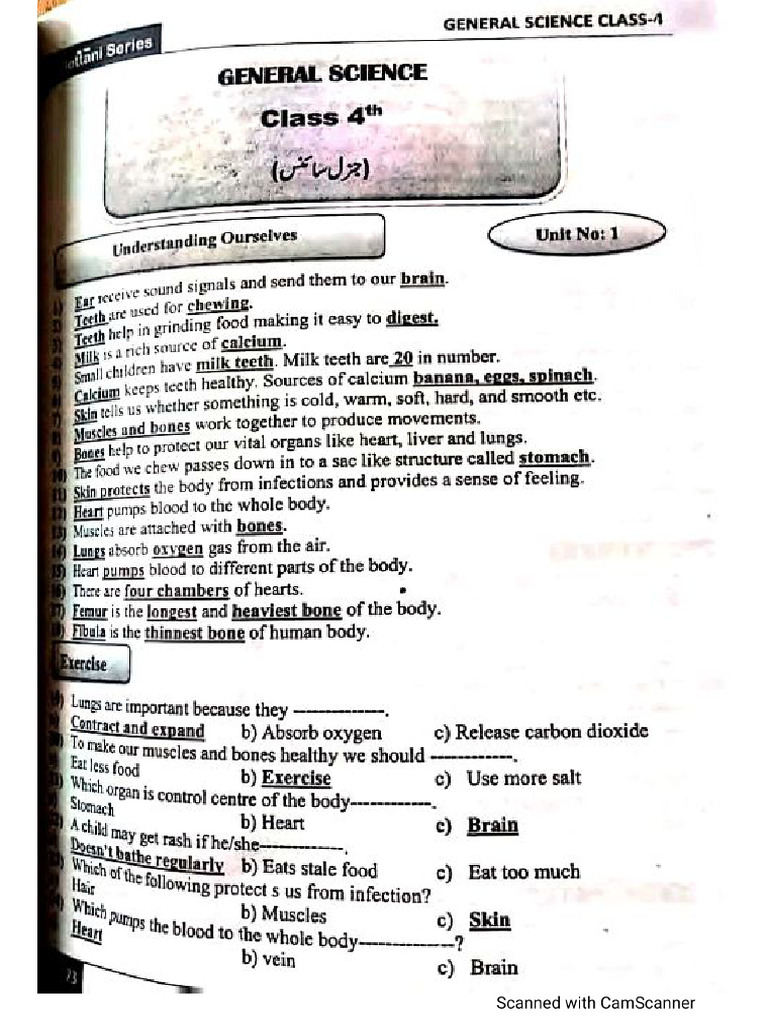 GENERAL SCIENCE CLASS-4
Series
GENERAL SCIENCE
Class 4th
(جنرل سائنس)
Understanding Ourselves
Unit No: 1
1) Ear receive sound signals and send them to our brain.
2) Teeth are used for chewing.
3) Teeth help in grinding food making it easy to digest.
4) Milk is a rich source of calcium.
5) Small children have milk teeth. Milk teeth are 20 in number.
6) Calcium keeps teeth healthy. Sources of calcium banana, eggs, spinach.
7) Skin tells us whether something is cold, warm, soft, hard, and smooth etc.
8) Muscles and bones work together to produce movements.
9) Bones help to protect our vital organs like heart, liver and lungs.
10) The food we chew passes down in to a sac like structure called stomach.
11) Skin protects the body from infections and provides a sense of feeling.
12) Heart pumps blood to the whole body.
13) Muscles are attached with bones.
14) Lungs absorb oxygen gas from the air.
15) Heart pumps blood to different parts of the body.
16) There are four chambers of hearts.
17) Femur is the longest and heaviest bone of the body.
18) Fibula is the thinnest bone of human body.
Exercise
Lungs are important because they --------------.
Contract and expand b) Absorb oxygen c) Release carbon dioxide
To make our muscles and bones healthy we should ------------.
Eat less food b) Exercise c) Use more salt
Which organ is control centre of the body------------.
Stomach b) Heart c) Brain
A child may get rash if he/she-------------.
Doesn't bathe regularly b) Eats stale food c) Eat too much
Which of the following protect s us from infection?
Hair b) Muscles c) Skin
Which pumps the blood to the whole body--------------?
Heart b) vein c) Brain
73
Scanned with CamScanner